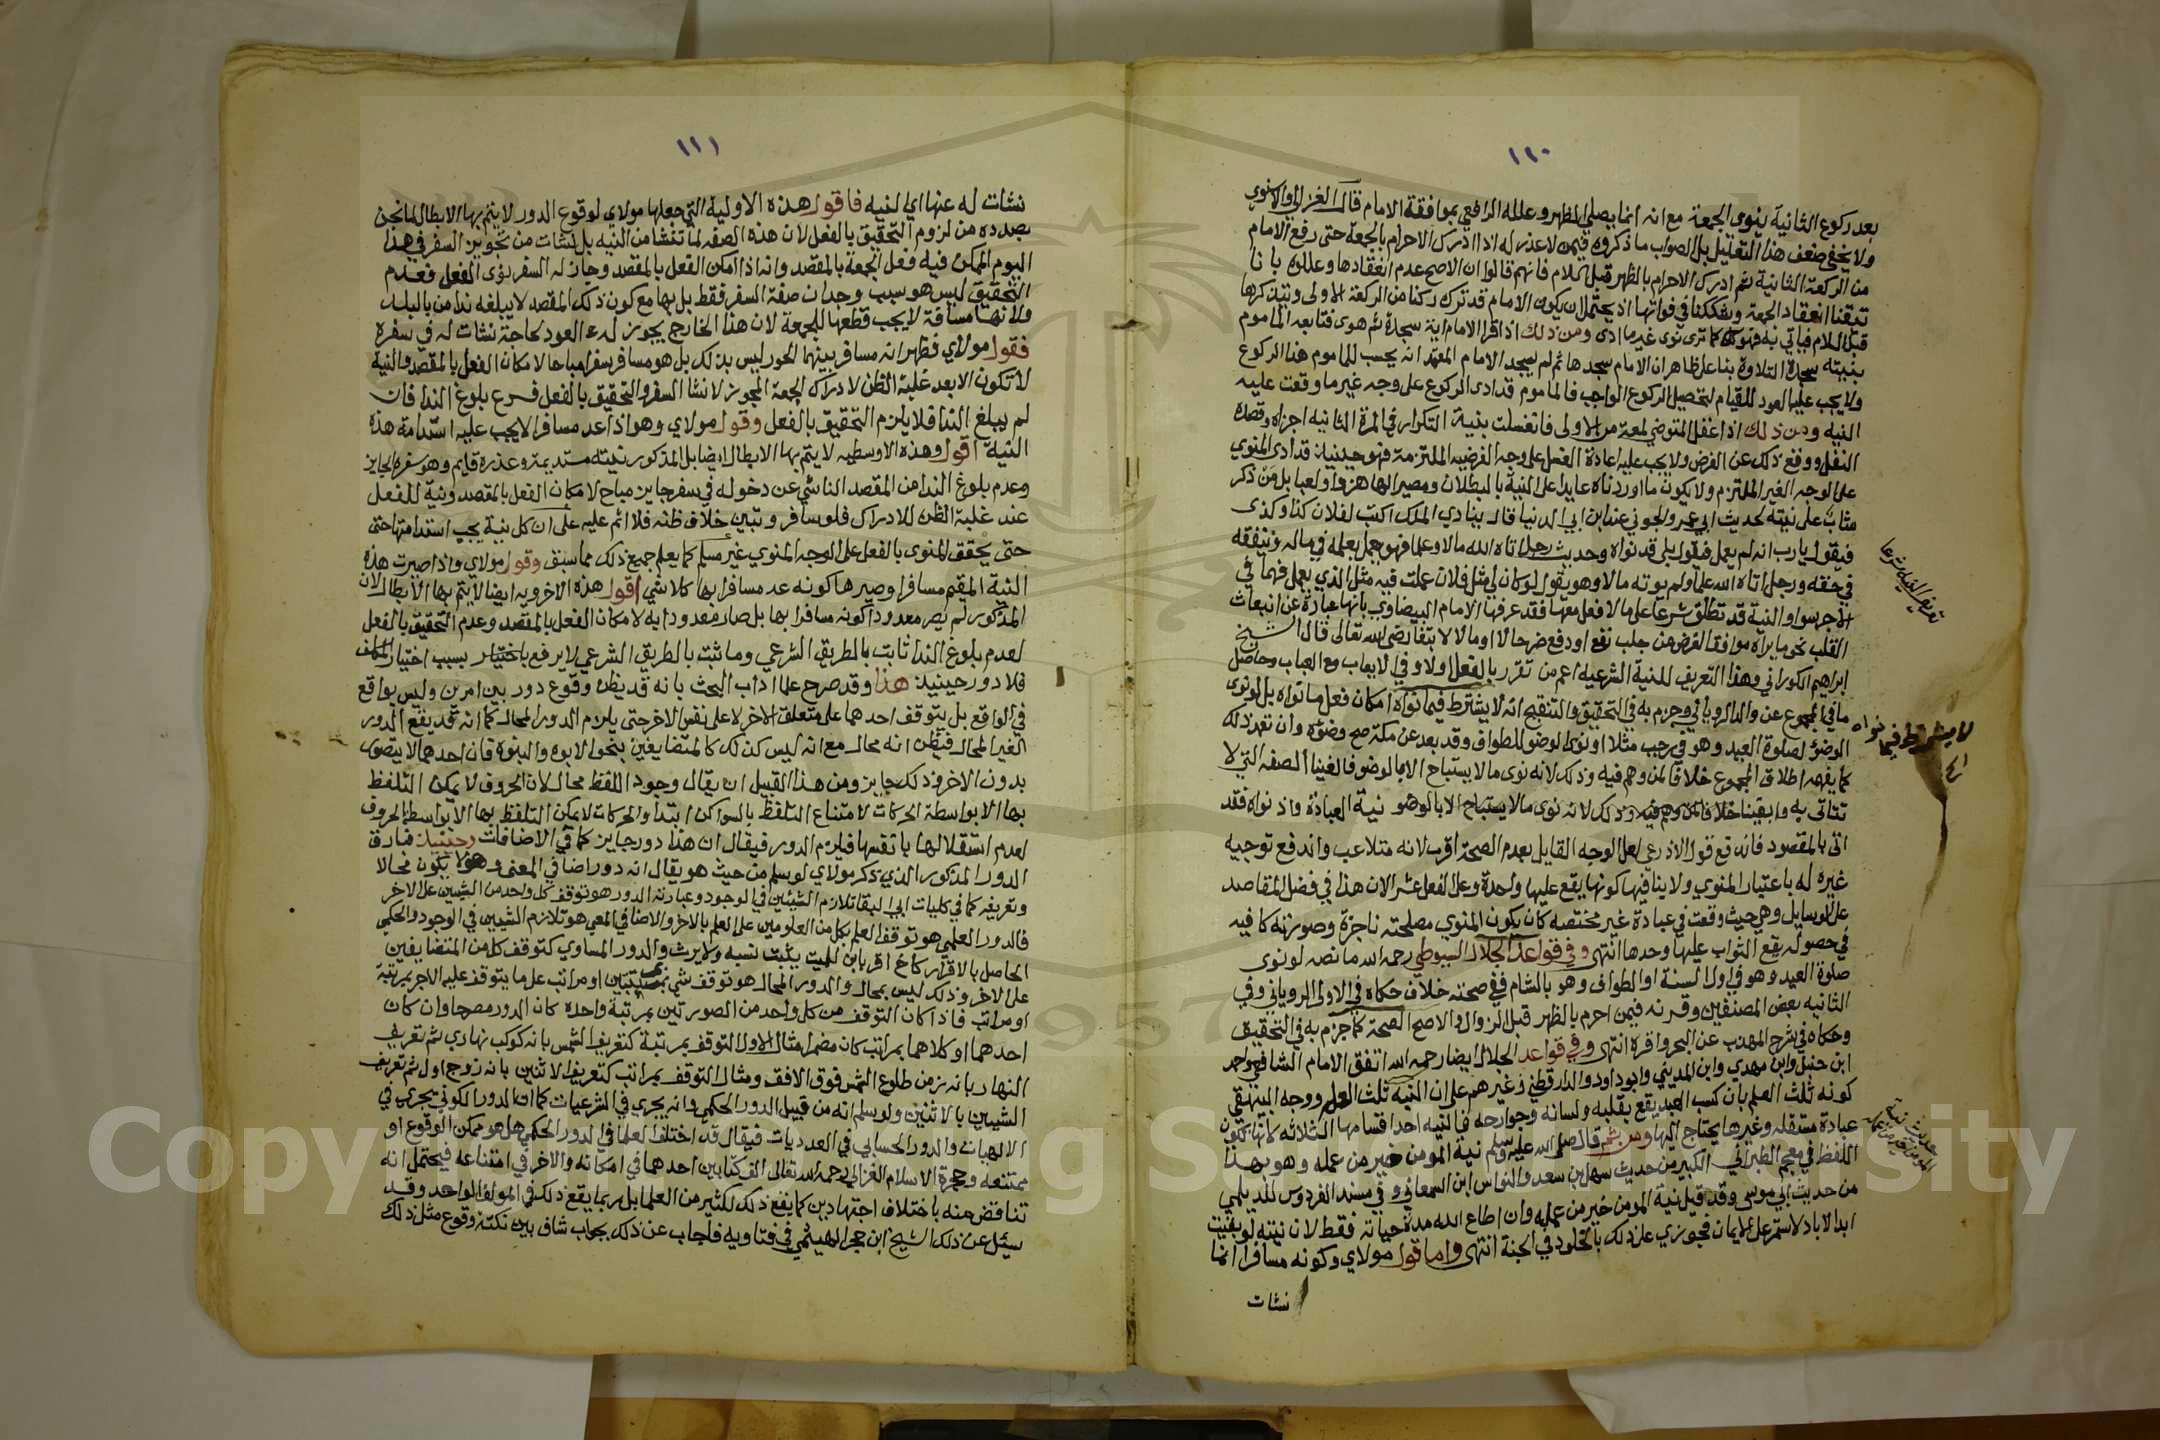 ١١٠
بعد ركوع الثانية ينوي الجمعة مع انه انما يصلي الظهر وعلله الرافعي بموافقة الامام قال الغزالي والاسنوي
ولا يخفى ضعف هذا التعليل بل الصواب ما ذكروه فيمن لا عذر له اذا ادرك الاحرام بالجمعة حتى رفع الامام
من الركعة الثانية ثم ادرك الاحرام بالظهر قبل السلام فانهم قالوا ان الاصح عدم انعقادها وعللوه بانا
تيقنا انعقاد الجمعة وشككنا في فواتها اذ يحتمل ان يكون الامام قد ترك ركنا من الركعة الاولى ويتذكرها
قبل السلام فياتي به فهو كما ترى نوى غير ما ادى ومن ذلك اذا قرا الامام اية سجدة ثم هوى فتابعه الماموم
بنيته سجدة التلاوة بناء على ظاهر ان الامام سجدها ثم لم يسجد الامام المعتمد انه يحسب للماموم هذا الركوع
ولا يجب عليه العود للقيام لتحصيل الركوع الواجب فالماموم قد ادى الركوع على وجه غير ما وقعت عليه
النيه ومن ذلك اذا غفل المتوضي لمعة من الاولى فانغسلت بنية التكرار في المرة الثانيه اجزاه وقصده
النفل ووقع ذلك عن الفرض ولا يجب عليه اعادة الغسل على وجه الفرضيه الملتزمة فهو حينيذ قد ادى المنوي
على الوجه الغير الملتزم ولا يكون ما اوردناه عايدا على النية بالبطلان ومصيرا لها هزوا ولعبا بل من ذكر
مثاب على نيته لحديث ابي عمرو الجوني عند ابن ابي الدنيا قال ينادي الملك اكتب لفلان كذا وكذى
فيقول يا رب انه لم يعمل فيقول بلى قد نواه وحديث رجل اتاه الله مالا وعلما فهو يعمل بعلمه في ماله وينفقه
في حقه ورجل اتاه الله علما ولم يوته مالا وهو يقول لو كان لي مثل فلان عملت فيه مثل الذي يعمل فهما في
الاجر سوا والنية قد تطلق شرعا على ما لا فعل معها فقد عرفها الامام البيضاوي بانها عبارة عن انبعاث
القلب نحو ما يراه موافقا لغرض من جلب نفع او دفع ضر حالا او مالا لابتغا رضى الله تعالى قال الشيخ
ابراهيم الكوراني وهذا التعريف للنية الشرعيه اعم من تقرر بالفعل اولا وفي الايعاب مع العباب وحاصل
ما في المجموع عن والد الروياني وجزم به في التحقيق والتنقيح انه لا يشترط فيما نواه امكان فعل ما نواه بل لو نوى
الوضو لصلوة العيد وهو في رجب مثلا او نوى الوضو للطواف وقد بعد عن مكة صح وضوه وان تعذر ذلك
كما يفهمه اطلاق المجموع خلافا لمن وهم فيه وذلك لانه نوى ما لا يستباح الا بالوضو فالغينا الصفه التي لا
تتاتى به وابقينا خلافا لمن وهم فيه وذلك لانه نوى ما لا يستباح الا بالوضو نية العبادة واذ نواه فقد
اتى بالمقصود فاندفع قول الاذرعي لعل الوجه القايل بعدم الصحة اقرب لانه متلاعب واندفع توجيه
غيره له باعتبار المنوي ولا ينافيها كونها يقع عليها واحدة وعلى الفعل عشر الان هذا في فضل المقاصد
على الوسايل وهي حيث وقعت في عبادة غير مختصه كان يكون المنوي مصلحته ناجزة وصورته كافيه
في حصوله يقع الثواب عليها وحدها انتهى وفي قواعد الجلال السيوطي رحمه الله ما نصه لو نوى
صلوة العيد وهو في اول السنة او الطواف وهو بالشام ففي صحته خلاف حكاه في الاولى الروياني وفي
الثانيه بعض المصنفين وقرنه فيمن احرم بالظهر قبل الزوال والاصح الصحة كما جزم به في التحقيق
وحكاه في شرح المهذب عن البحر واقره انتهى وفي قواعد الجلال ايضا رحمه الله اتفق الامام الشافعي واحمد
ابن حنبل وابن مهدي وابن المديني وابو داود والدارقطني وغيرهم على ان النية ثلث العلم ووجه البيهقي
كونه ثلث العلم بان كسب العبد يقع بقلبه ولسانه وجوارحه فالنيه احد اقسامها الثلاثه لانها تكون
عبادة مستقله وغيرها يحتاج اليها ومن ثم قال صلى الله عليه وسلم نية المومن خير من عمله وهو بهذا
اللفظ في معجم الطبراني الكبير من حديث سهل بن سعد والنواس ابن السمعان وفي مسند الفردوس للديلمي
من حديث ابي موسى وقد قيل نية المومن خير من عمله وان اطاع الله مدة حياته فقط لان نيته لو بقيت
ابد الاباد لاستمر على الايمان فجوزي على ذلك بالخلود في الجنة انتهى واما قول مولاي وكونه مسافرا انما
نشات
تعريف النيه شرعا
لا يشترط فيما نواه
١١١
نشات له عنها اي النيه فاقول هذه الاولية التي جعلها مولاي لوقوع الدور لا يتم بها الابطال لما نحن
بصدده من لزوم التحقيق بالفعل لان هذه الصفه لم تنشا من النيه بل نشات من تجويز السفر في هذا
اليوم الممكن فيه فعل الجمعة بالمقصد وانه اذا امكن الفعل بالمقصد وجاز له السفر نوى الفعل فعدم
التحقيق ليس هو سبب وجدان صفة السفر فقط بل بها مع كون ذلك المقصد لا يبلغه ندا من بالبلد
ولانها مسافة لا يجب قطعها للجمعة لان هذا الخارج يجوز له العود لحاجة نشات له في سفره
فقول مولاي فظهر انه مسافر بينهما الحور ليس بذلك بل هو مسافر سفرا مباحا لامكان الفعل بالمقصد والنية
لا تكون الا بعد غلبة الظن لادراك الجمعة المجوز لانشا السفر والتحقيق بالفعل فرع بلوغ الندا فان
لم يبلغ الندا فلا يلزم التحقيق بالفعل وقول مولاي وهو اذا عد مسافرا لا يجب عليه استدامة هذه
النية اقول وهذه الاوسطيه لا يتم بها الابطال ايضا بل المذكور نيته مستديمة وعذره قايم وهو سفره الجايز
وعدم بلوغ الندا من المقصد الناشي عن دخوله في سفر جايز مباح لامكان الفعل بالمقصد ونية للفعل
عند غلبة الظن للادراك فلو سافر وتبين خلاف ظنه فلا اثم عليه على ان كل نية يجب استدامتها حتى
حتى يحقق المنوي بالفعل على الوجه المنوي غير مسلم كما يعلم جميع ذلك مما سبق وقول مولاي واذا صيرت هذه
النية المقيم مسافرا وصيرها كونه عد مسافرا بها كلا شي اقول هذه الاخرويه ايضا لا يتم بها الابطال لان
المذكور لم يصر معدودا كونه مسافرا بها بل صار معدودا به لامكان الفعل بالمقصد وعدم التحقيق بالفعل
لعدم بلوغ الندا ثابت بالطريق الشرعي وما ثبت بالطريق الشرعي لا يرفع باختيار بسبب اختيار المكلف
فلا دور حينيذ هذا وقد صرح علما اداب البحث بانه قد يظن وقوع دور بين امرين وليس بواقع
في الواقع بل يتوقف احدهما على متعلق الاخر لا على نفس الاخر حتى يلزم الدور المحال كما انه قد يقع الدور
الغير المحال فيظن انه محال مع انه ليس كذلك كالمتضايفين بنحو الابوه والبنوه فان احدهما لا يتصور
بدون الاخر وذلك جايز ومن هذا القبيل ان يقال وجود اللفظ محال لان الحروف لا يمكن التلفظ
بها الا بواسطة الحركات لامتناع التلفظ بالسواكن ابتدأ والحركات لا يمكن التلفظ بها الا بواسطة الحروف
لعدم استقلالها بانفسها فيلزم الدور فيقال ان هذا دور جايز كما في الاضافات وحينيذ فارق
الدور المذكور الذي ذكر مولاي لو سلم من حيث هو يقال انه دور اضافي المعنى وهو لا يكون محالا
وتعريفه كما في كليات ابي البقا تلازم الشيئين في الوجود وعبارته الدور هو توقف كل واحد من الشيين على الاخر
فالدور العلمي هو توقف العلم بكل من العلومين على العلم بالاخر والاضافي المعي هو تلازم الشيين في الوجود والحكمي
الحاصل بالاقرار كاخ اقر بابن للميت يثبت نسبه ولا يرث والدور المساوي كتوقف كل من المتضايفين
على الاخر وذلك ليس بمحال والدور المحال هو توقف شي بمرتبتين او مراتب على ما يتوقف عليه الاخر بمرتبة
او مراتب فاذا كان التوقف من كل واحد من الصورتين بمرتبة واحده كان الدور مصرحا وان كان
احدهما او كلاهما بمراتب كان مضمرا مثال الاول التوقف بمرتبة كتعريف الشمس بانه كوكب نهاري ثم تعريف
النهار بانه زمن طلوع الشمس فوق الافق ومثال التوقف بمراتب كتعريف الاثنين بانه زوج اول ثم تعريف
الشيين بالاثنين ولو سلم انه من قبيل الدور الحكمي وانه يجري في الشرعيات كما ان الدور الكوني يجري في
الالهيات والدور الحسابي في العدديات فيقال قد اختلف العلما في الدور الحكمي هل هو ممكن الوقوع او
ممتنعه وحجة الاسلام الغزالي رحمه الله تعالى الف كتابين احدهما في امكانه والاخر في امتناعه فيحتمل انه
تناقض منه باختلاف اجتهادين كما يقع ذلك لكثير من العلما بل ربما يقع ذلك في المولف الواحد وقد
سيل عن ذلك الشيخ ابن حجر الهيثمي في فتاويه فاجاب عن ذلك بجواب شاف بين نكتة وقوع مثل ذلك
Copy
ng S
sity
957